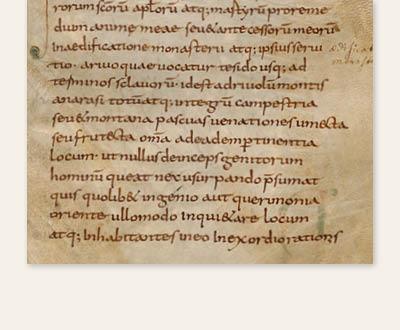 rorum scōrū aplōrū atq; martyrū pro reme
dium anime meae seu & antecessorū meorū
In aedificatione monasterii atq; ipsius servi
tio· a rivo quae vocatur tesido usq; ad
terminos sclavorū· id est ad rivolū montis
anarasi totū atq; integrū campestria
seu & montana pascuas venationes umecta
seu frutecta om̄a ad eadem ptinentia
locum· ut nullus deinceps genitorum
hominū queat nec usurpando p̄sumat
quis quolib& ingenio aut querimonia
oriente ullo modo inqui&are locum
atq; Inhabitantes in eo In exordio rationis